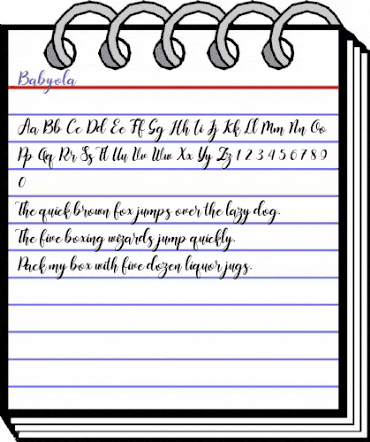 Babyola
Aa Bb Cc Dd Ee Ff Gg Hh Ii Jj Kk Ll Mm Nn Oo
Pp Qq Rr Ss Tt Uu Vv Ww Xx Yy Zz 1 2 3 4 5 6 7 8 9
0
The quick brown fox jumps over the lazy dog.
The five boxing wizards jump quickly.
Pack my box with five dozen liquor jugs.